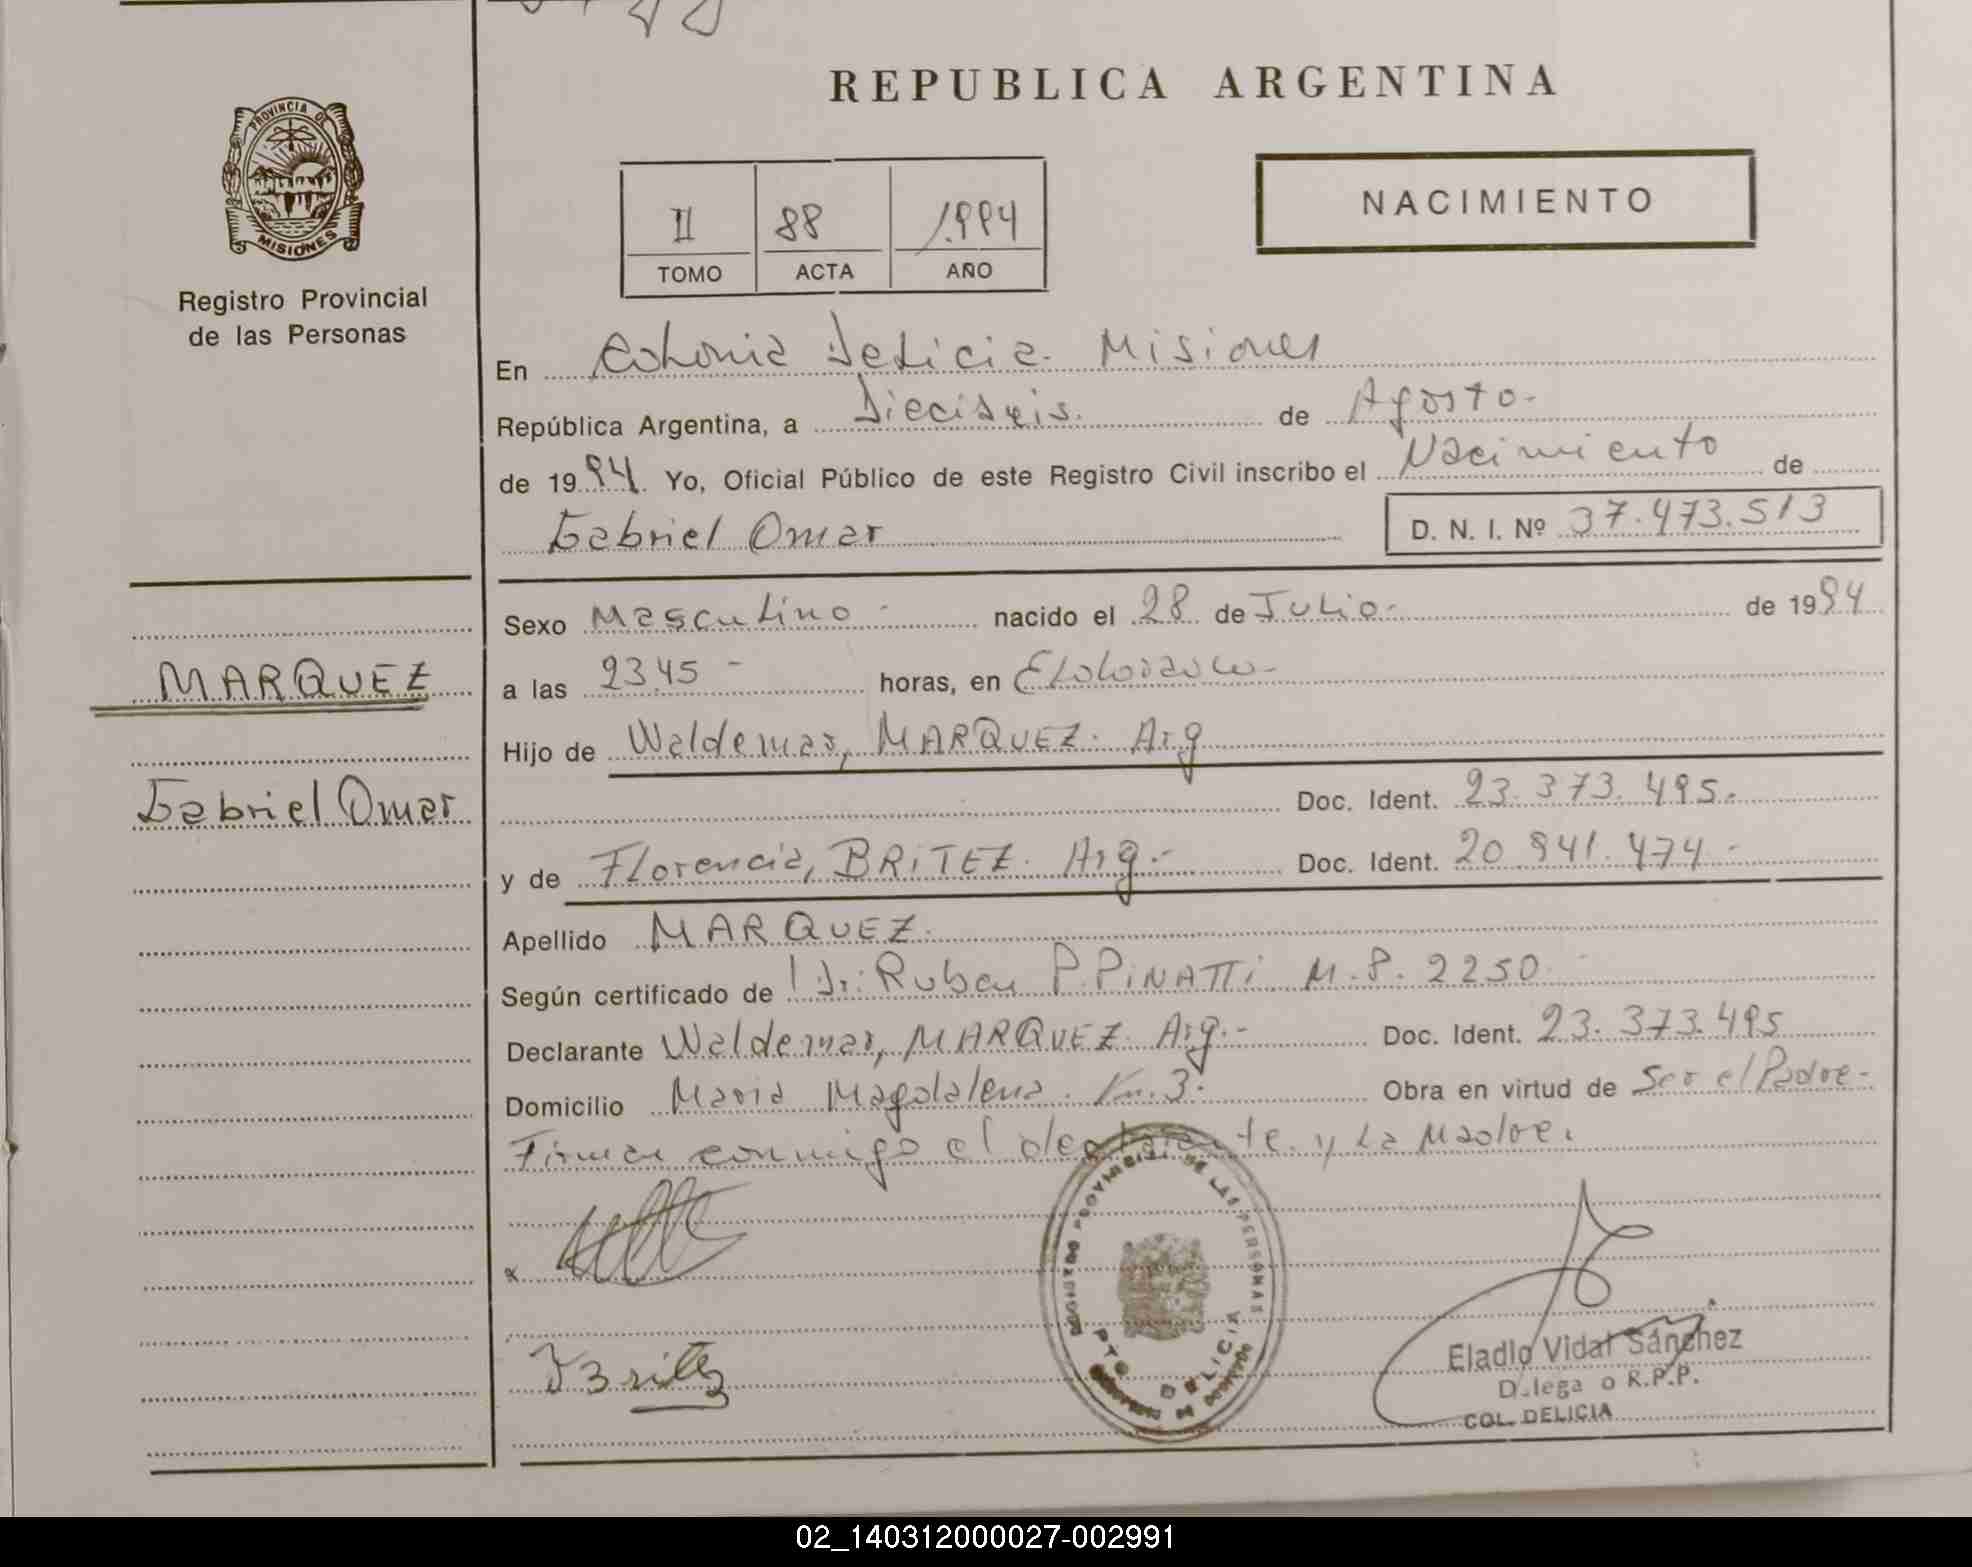 REPUBLICA ARGENTINA
PROVINCIA DE
MISIONES
Registro Provincial
de las Personas
NACIMIENTO
II 88 1.994
TOMO ACTA AÑO
En Colonia Delicia. Misiones
República Argentina, a Dieciseis. de Agosto-
de 1994. Yo, Oficial Público de este Registro Civil inscribo el Nacimiento de
Gabriel Omar D. N. I. Nº 37.473.513
Sexo Masculino - nacido el 28 de Julio.- de 1994
MARQUEZ
a las 23.45 - horas, en Eldorado-
Hijo de Waldemar, MARQUEZ. Arg
Gabriel Omar
Doc. Ident. 23.373.495.-
y de Florencia, BRITEZ. Arg.- Doc. Ident. 20.941.474 -
Apellido MARQUEZ.
Según certificado de Dr: Ruben P. PiNATTi M.P. 2250
Declarante Waldemar, MARQUEZ. Arg.- Doc. Ident. 23.373.495
Domicilio Maria Magdalena. Km.3. Obra en virtud de Ser el Padre-
Firman conmigo el declarante y La Madre.
PROVINCIAL DE LAS PERSONAS
PTO DELICIA
Britez
Eladio Vidal Sánchez
Delegado R.P.P.
COL. DELICIA
02_140312000027-002991